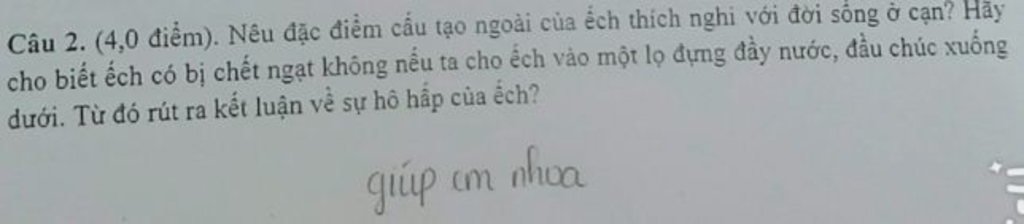 Câu 2. (4,0 điểm). Nêu đặc điểm cấu tạo ngoài của ếch thích nghi với đời sống ở cạn? Hãy
cho biết ếch có bị chết ngạt không nếu ta cho ếch vào một lọ đựng đầy nước, đầu chúc xuống
dưới. Từ đó rút ra kết luận về sự hô hấp của ếch?
giúp em nhoa